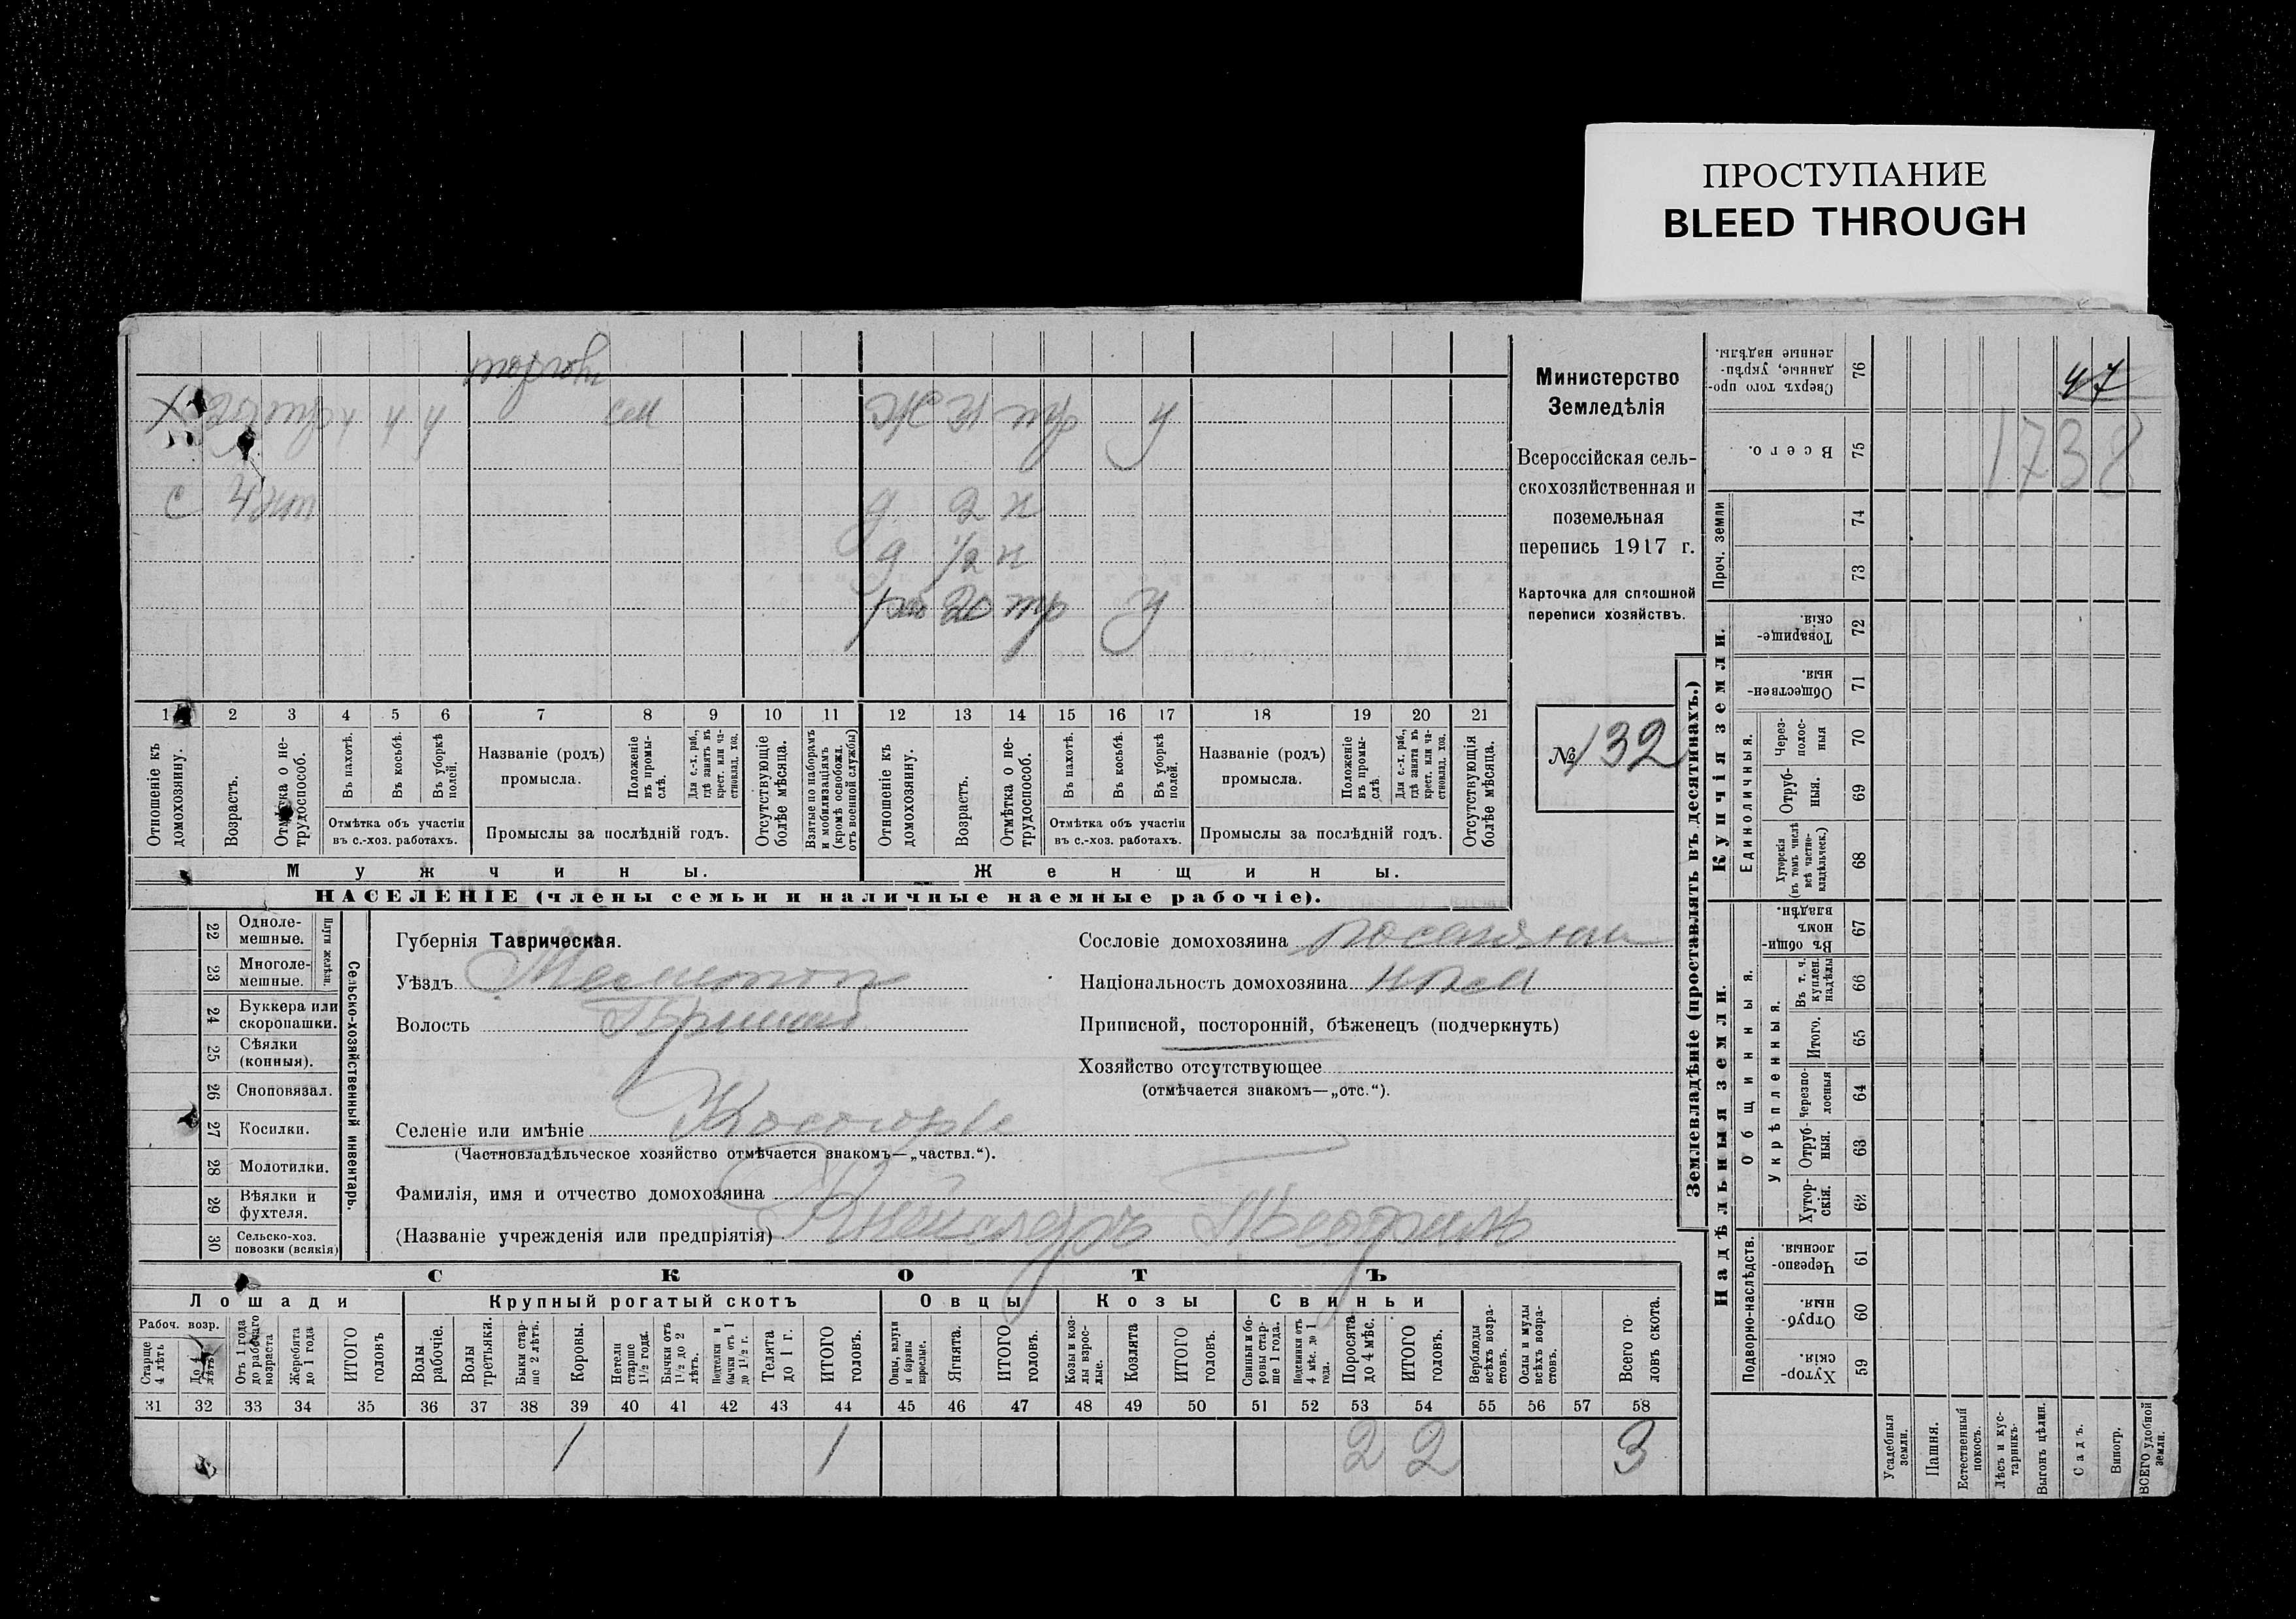 ПРОСТУПАНИЕ
BLEED THROUGH
торгов
Х тр у у у сем Ж 31 тр у
с 4 нт д 2 н
д 1/2 н
20 тр у
1 2 3 4 5 6 7 8 9 10 11 12 13 14 15 16 17 18 19 20 21
Отношеніе къ домохозяину.
Возрастъ.
Отмѣтка о нетрудоспособ.
Въ пахотѣ.
Въ косьбѣ.
Въ уборкѣ полей.
Отмѣтка объ участіи въ с.-хоз. работахъ.
Названіе (родъ) промысла.
Положеніе въ промыслѣ.
Для с.-х. раб., гдѣ занятъ въ крест. или частновлад. хоз.
Промыслы за послѣдній годъ.
Отсутствующіе болѣе мѣсяца.
Взятые по наборамъ и мобилизаціямъ (кромѣ освобожд. отъ военной службы)
Отношеніе къ домохозяину.
Возрастъ.
Отмѣтка о нетрудоспособ.
Въ пахотѣ.
Въ косьбѣ.
Въ уборкѣ полей.
Отмѣтка объ участіи въ с.-хоз. работахъ.
Названіе (родъ) промысла.
Положеніе въ промыслѣ.
Для с.-х. раб., гдѣ занята въ крест. или частновлад. хоз.
Промыслы за послѣдній годъ.
Отсутствующія болѣе мѣсяца.
Мужчины.
Женщины.
НАСЕЛЕНІЕ (члены семьи и наличные наемные рабочіе).
Министерство
Земледѣлія
Всероссійская сель-
скохозяйственная и
поземельная
перепись 1917 г.
Карточка для сплошной
переписи хозяйствъ.
№ 132
22 Одноле-
мешные.
23 Многоле-
мешные.
Плуги желѣзн.
24 Буккера или
скоропашки.
25 Сѣялки
(конныя).
26 Сноповязал.
27 Косилки.
28 Молотилки.
29 Вѣялки и
фухтеля.
30 Сельско-хоз.
повозки (всякія)
Сельско-хозяйственный инвентарь.
Губернія Таврическая.
Уѣздъ Мелитоп
Волость Пришиб
Селеніе или имѣніе Косогорье
(Частновладѣльческое хозяйство отмѣчается знакомъ—„частвл.“).
Фамилія, имя и отчество домохозяина
(Названіе учрежденія или предпріятія) Кнейслеръ Теофиль
Сословіе домохозяина поселянин
Національность домохозяина нѣм
Приписной, посторонній, бѣженецъ (подчеркнуть)
Хозяйство отсутствующее
(отмѣчается знакомъ—„отс.“).
СКОТЪ
Лошади
Рабоч. возр.
Старше 4 лѣтъ
До 4 лѣтъ
Отъ 1 года до рабочаго возраста
Жеребята до 1 года
ИТОГО головъ
Крупный рогатый скотъ
Волы рабочіе.
Волы третьяки.
Быки старше 2 лѣтъ.
Коровы.
Нетели старше 1½ года.
Бычки отъ 1½ до 2 лѣтъ.
Подтелки и бычки отъ 1 до 1½ г.
Телята до 1 г.
ИТОГО головъ.
Овцы
Овцы, валухи и бараны взрослые.
Ягнята.
ИТОГО головъ.
Козы
Козы и козлы взрослые.
Козлята
ИТОГО головъ.
Свиньи
Свиньи и боровы старше 1 года.
Подсвинки отъ 4 мѣс. до 1 года.
Поросята до 4 мѣс.
ИТОГО головъ.
Верблюды всѣхъ возрастовъ.
Ослы и мулы всѣхъ возрастовъ.
Всего головъ скота.
31 32 33 34 35 36 37 38 39 40 41 42 43 44 45 46 47 48 49 50 51 52 53 54 55 56 57 58
1 1 2 2 3
Землевладѣніе (проставлять въ десятинахъ.)
Купчія земли.
Сверхъ того проданные, укрѣпленные надѣлы. 76
47
Всего. 75
1738
Проч. земли
74
73
Товарищескія. 72
Общественныя. 71
Единоличныя.
Черезполосныя 70
Отрубныя. 69
Хуторскія (въ томъ числѣ всѣ частновладѣльческ.) 68
Надѣльныя земли.
Общинныя.
Въ общинномъ владѣн. 67
Укрѣпленныя.
Въ т. ч. куплен. надѣлы 66
Итого. 65
Черезполосныя 64
Отрубныя. 63
Хуторскія. 62
Подворно-наслѣдств.
Черезполосныя. 61
Отрубныя. 60
Хуторскія. 59
Усадебныя земли.
Пашня.
Естественный покосъ.
Лѣсъ и кустарникъ.
Выгонъ цѣлин.
Садъ.
Виногр.
ВСЕГО удобной земли.